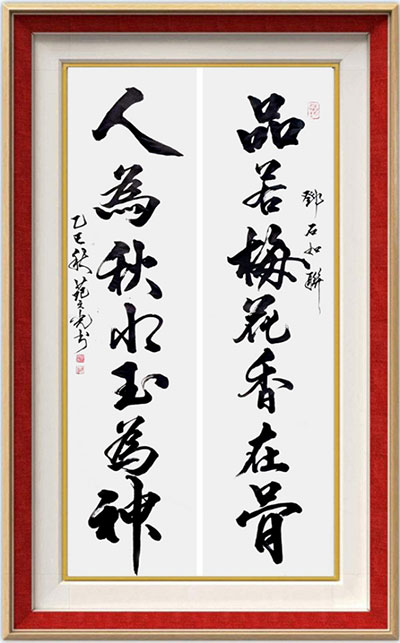 品若梅花香在骨
鄧石如聯
人為秋水玉為神
乙巳秋范